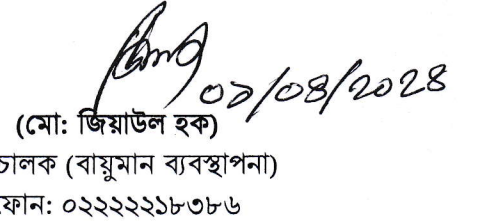 ০১/০৪/২০২৪
(মো: জিয়াউল হক)
চালক (বায়ুমান ব্যবস্থাপনা)
ফোন: ০২২২২২১৮৩৮৬